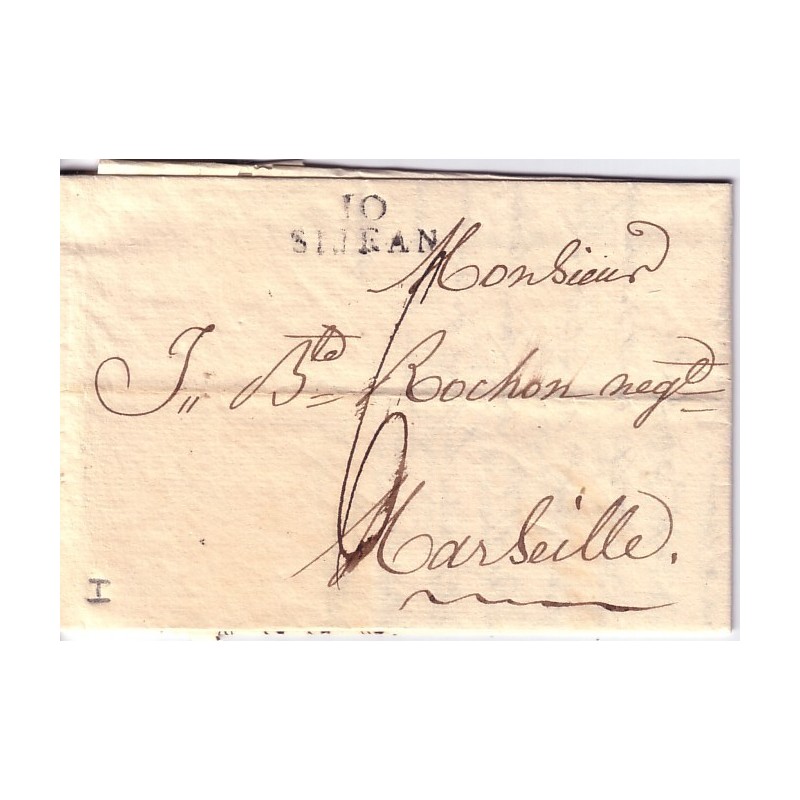 10
SIJEAN
Monsieur
J,, Bte Rochon negt
6
Marseille.
I